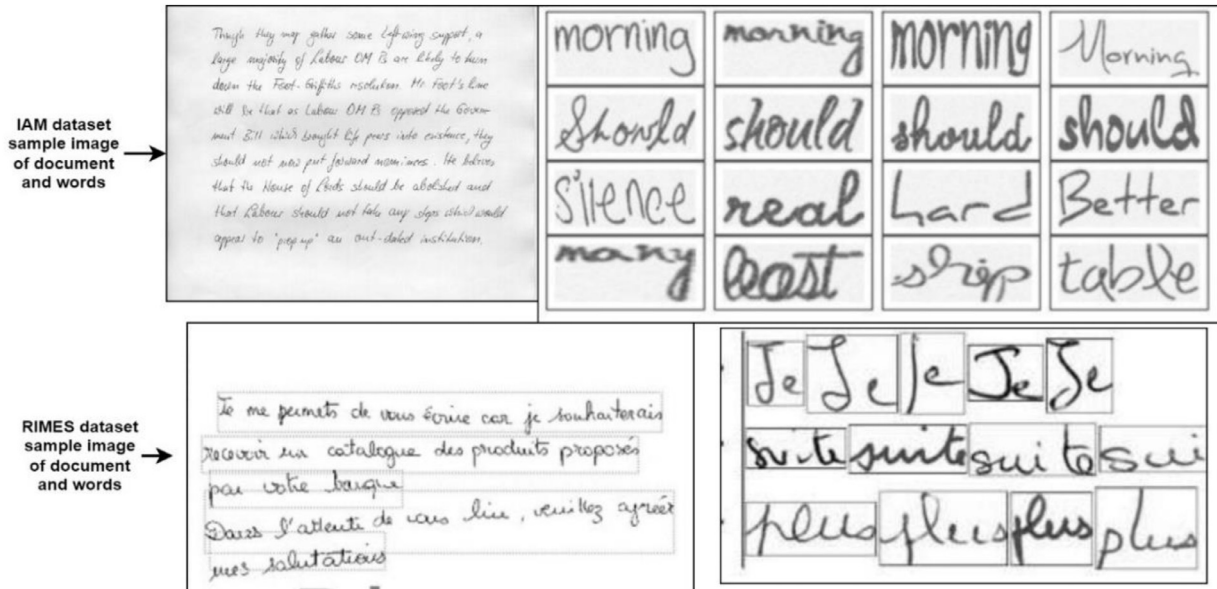 IAM dataset
sample image
of document
and words
Though they may gather some Left-wing support, a
large majority of Labour OM Ps are likely to turn
down the Foot-Griffiths resolution. Mr. Foot's line
will be that as Labour OM Ps opposed the Govern-
ment Bill which brought life peers into existence, they
should not now put forward nominees. He believes
that the House of Lords should be abolished and
that Labour should not take any steps which would
appear to "prop up" an out-dated institution.
morning morning morning Morning
Should should should should
silence real hard Better
many boast ship table
RIMES dataset
sample image
of document
and words
Je me permets de vous écrire car je souhaiterais
recevoir un catalogue des produits proposés
par votre banque
Dans l'attente de vous lire, veuillez agréer
mes salutations
Je Je Je Je Je
suite suite suite sui
plus plus plus plus